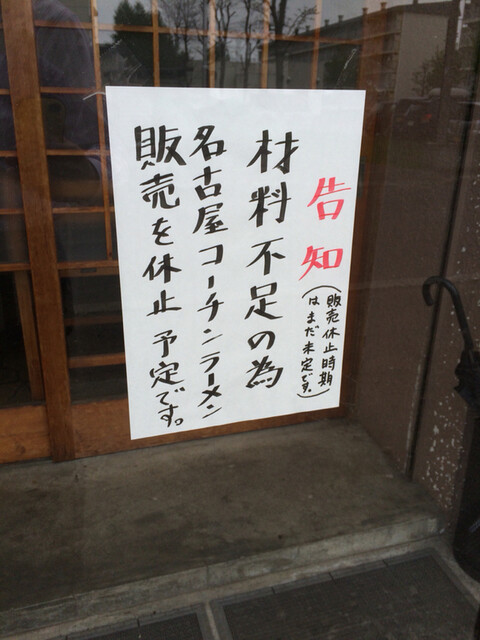 告知
(販売休止時期
はまだ未定です。)
材料不足の為
名古屋コーチンラーメン
販売を休止予定です。